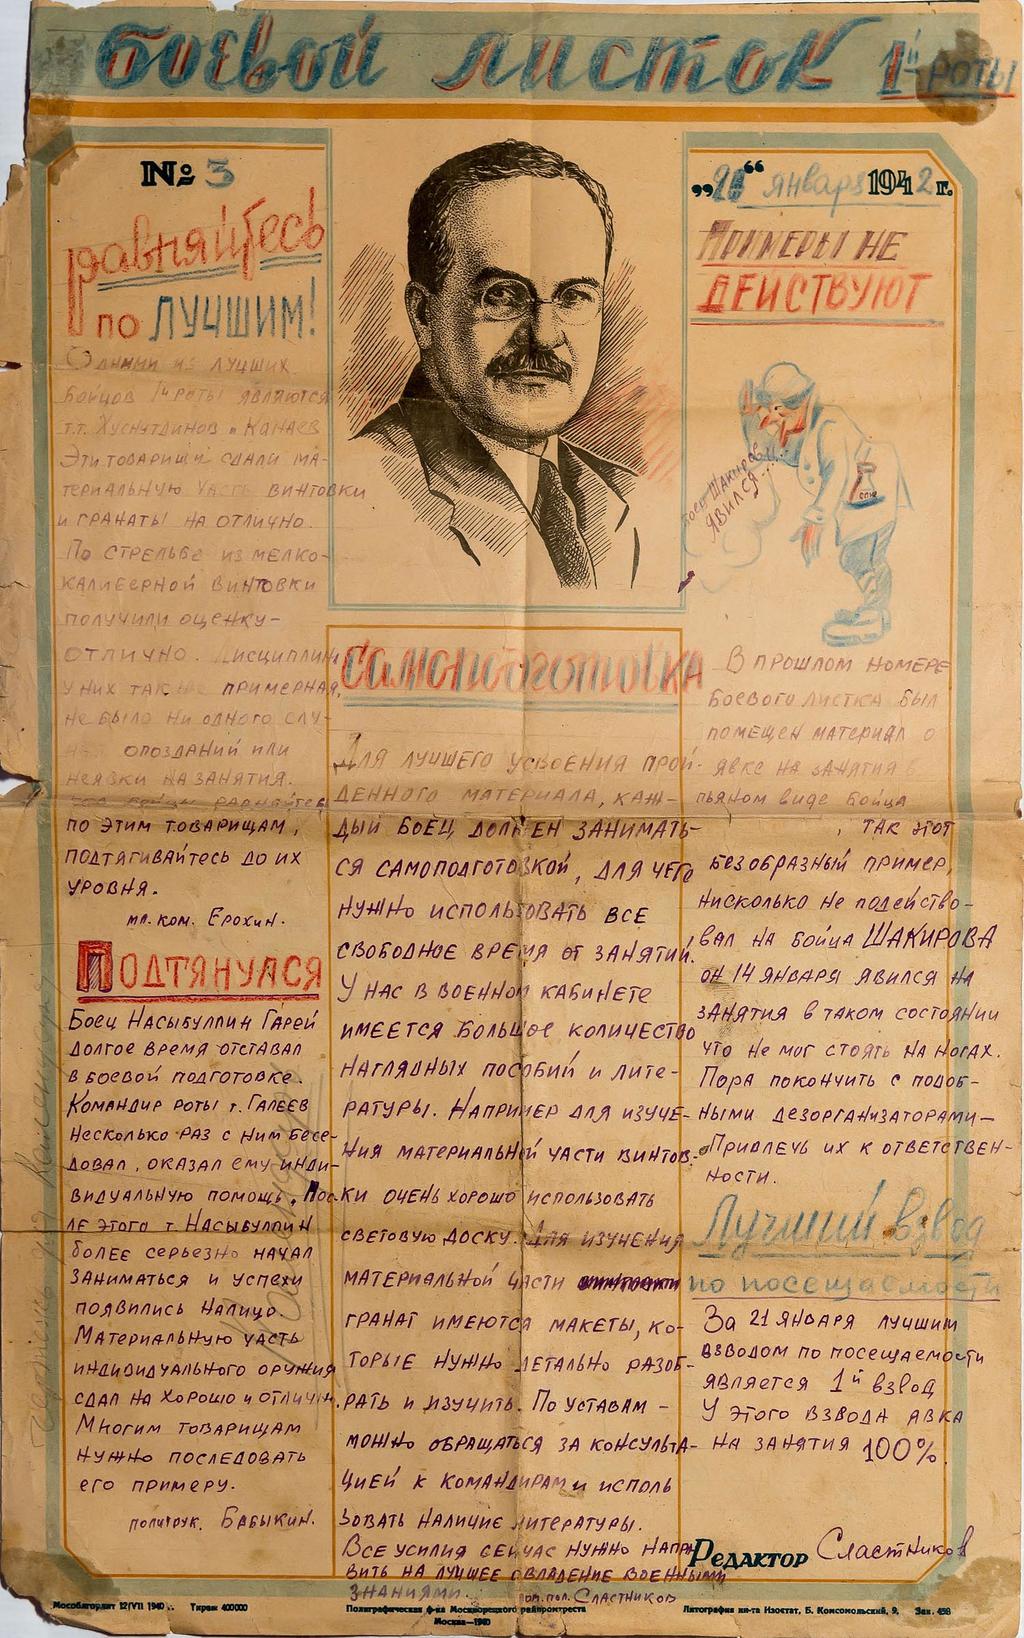 БОЕВОЙ ЛИСТОК 1й РОТЫ
№ 3
Равняйтесь
по ЛУЧШИМ!
Одними из лучших
бойцов 1й роты являются
т.т. Хуснутдинов и Канаев
Эти товарищи сдали ма-
териальную часть винтовки
и гранаты на отлично.
По стрельбе из мелко-
калиберной винтовки
получили оценку-
отлично. Дисциплина
у них так же примерная,
не было ни одного слу-
опозданий или
неявки на занятия.
Все бойцы равняйтесь
по этим товарищам,
подтягивайтесь до их
уровня.
мл. ком. Ерохин.
Подтянулся
Боец Насыбуллин Гарей
долгое время отставал
в боевой подготовке.
Командир роты т. Галеев
несколько раз с ним бесе-
довал, оказал ему инди-
видуальную помощь. Пос-
ле этого т. Насыбуллин
более серьезно начал
заниматься и успехи
появились налицо.
Материальную часть
индивидуального оружия
сдал на хорошо и отлично.
Многим товарищам
нужно последовать
его примеру.
политрук. Бабыкин.
САМОПОДГОТОВКА
Для лучшего усвоения прой-
денного материала, каж-
дый боец должен занимать-
ся самоподготовкой, для чего
нужно использовать все
свободное время от занятий.
У нас в военном кабинете
имеется большое количество
наглядных пособий и лите-
ратуры. Например для изуче-
ния материальной части винтов-
ки очень хорошо использовать
световую доску. Для изучения
материальной части винтовки
гранат имеются макеты, ко-
торые нужно детально разоб-
рать и изучить. По уставам –
можно обращаться за консульта-
цией к командирам и исполь
зовать наличие литературы.
Все усилия сейчас нужно напра-
вить на лучшее овладение военными
знаниями. пом. пол. Сластников
„20“ января 1942 г.
ПРИМЕРЫ НЕ
ДЕЙСТВУЮТ
боец Шакиров
явился...
В прошлом номере
боевого листка был
помещен материал о
явке на занятия в
пьяном виде бойца
, так этот
безобразный пример,
нисколько не подейство-
вал на бойца ШАКИРОВА
он 14 января явился на
занятия в таком состоянии
что не мог стоять на ногах.
Пора покончить с подоб-
ными дезорганизаторами–
Привлечь их к ответствен-
ности.
Лучший взвод
по посещаемости
За 21 января лучшим
взводом по посещаемости
является 1й взвод
У этого взвода явка
на занятия 100%.
Редактор Сластников
Мособлгорлит 12/VII 1940 г. Тираж 400000
Полиграфическая ф-ка Москворецкого райпромтреста
Москва—1940
Литография ин-та Изостат, Б. Комсомольский, 9, Зак. 458